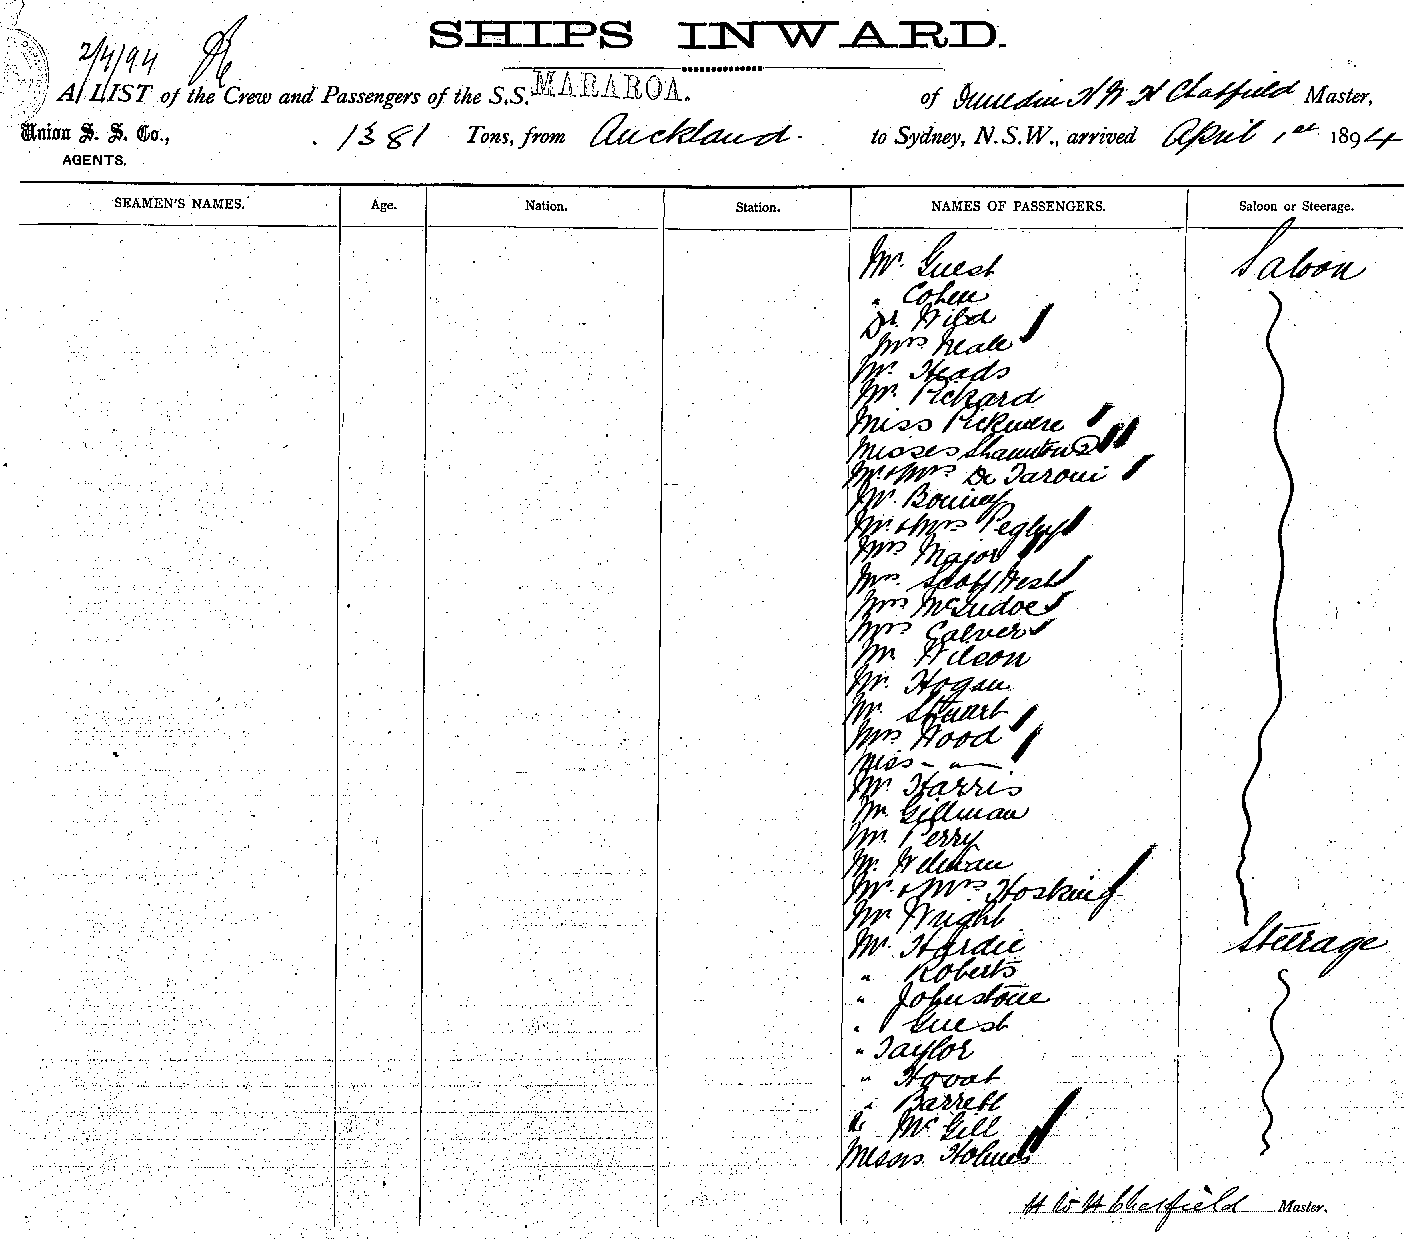 SHIPS INWARD.
2/4/94
A LIST of the Crew and Passengers of the S.S. MARAROA. of Dunedin H W H Chatfield Master,
Union S. S. Co., 1381 Tons, from Auckland. to Sydney, N.S.W., arrived April 1st 1894
AGENTS.
SEAMEN'S NAMES. Age. Nation. Station. NAMES OF PASSENGERS. Saloon or Steerage.
Mr. Guest Saloon
" Cohen
Dr. Wild
Mrs Neale
Mr. Heads
Mr. Pickard
Miss Pickmere
Misses Shannton 2
Mr & Mrs De Taroni
Mr. Bonney
Mr. & Mrs Pegley
Mrs Major
Mrs. Scott West
Mrs
Mrs Calver
Mr Wilson
Mr. Hogan
Mr. Stuart
Mrs Wood
Miss - " -
Mr. Harris
Mr. Gillman
Mr. Perry
Mr. Welman
Mr. & Mrs. Hosking
Mr Wright
Mr. Hardie Steerage
" Roberts
" Johnstone
" Guest
" Taylor
" Hovat
" Barrett
" McGill
Messrs. Holmes
H W H Chatfield Master.